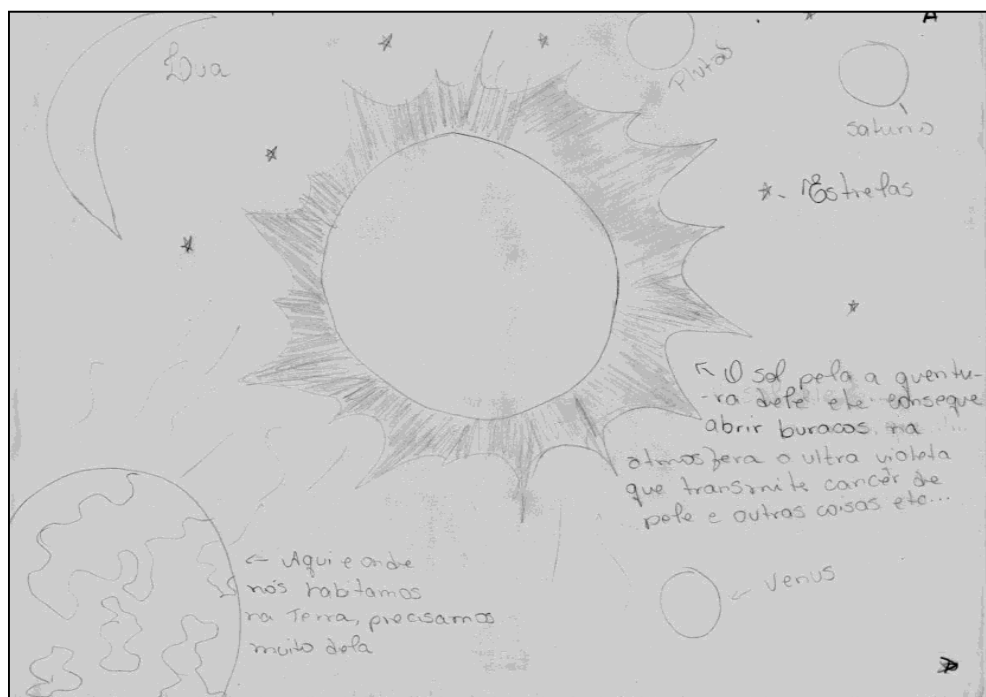 Lua
Plutão
Saturno
Estrelas
O sol pela a quentu-
-ra dele ele consegue
abrir buracos na
atmosfera o ultra violeta
que transmite cancêr de
pele e outras coisas etc...
Aqui e onde
nós habitamos
na Terra, precisamos
muito dela
Venus